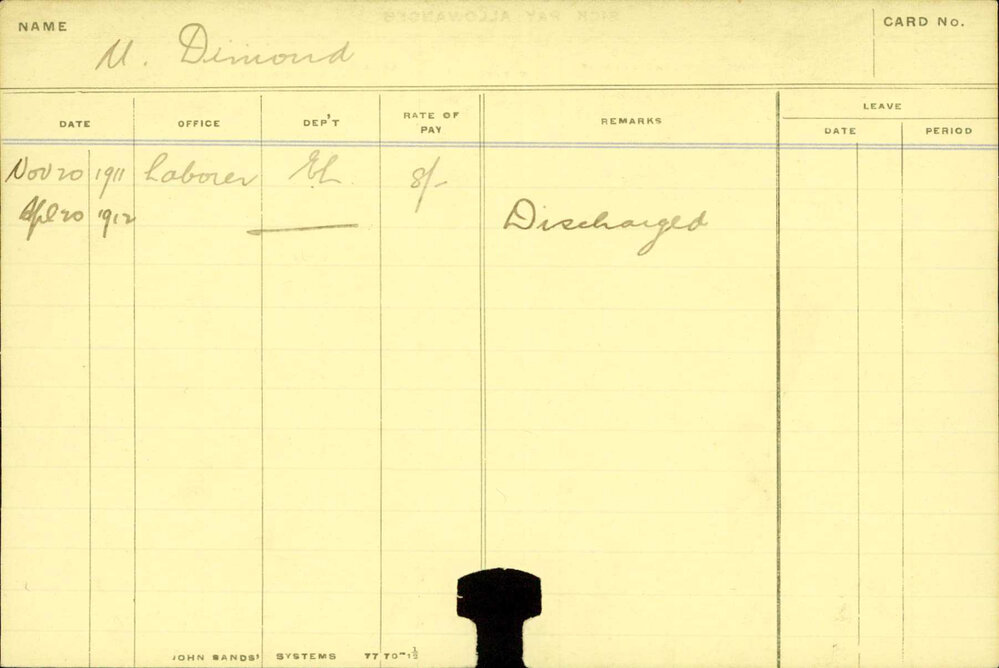 NAME M. Dimond CARD No.
LEAVE
DATE OFFICE DEP'T RATE OF PAY REMARKS DATE PERIOD
Nov 20 1911 Laborer EL 8/-
Apl 20 1912 Discharged
JOHN SANDS' SYSTEMS 7770-1½